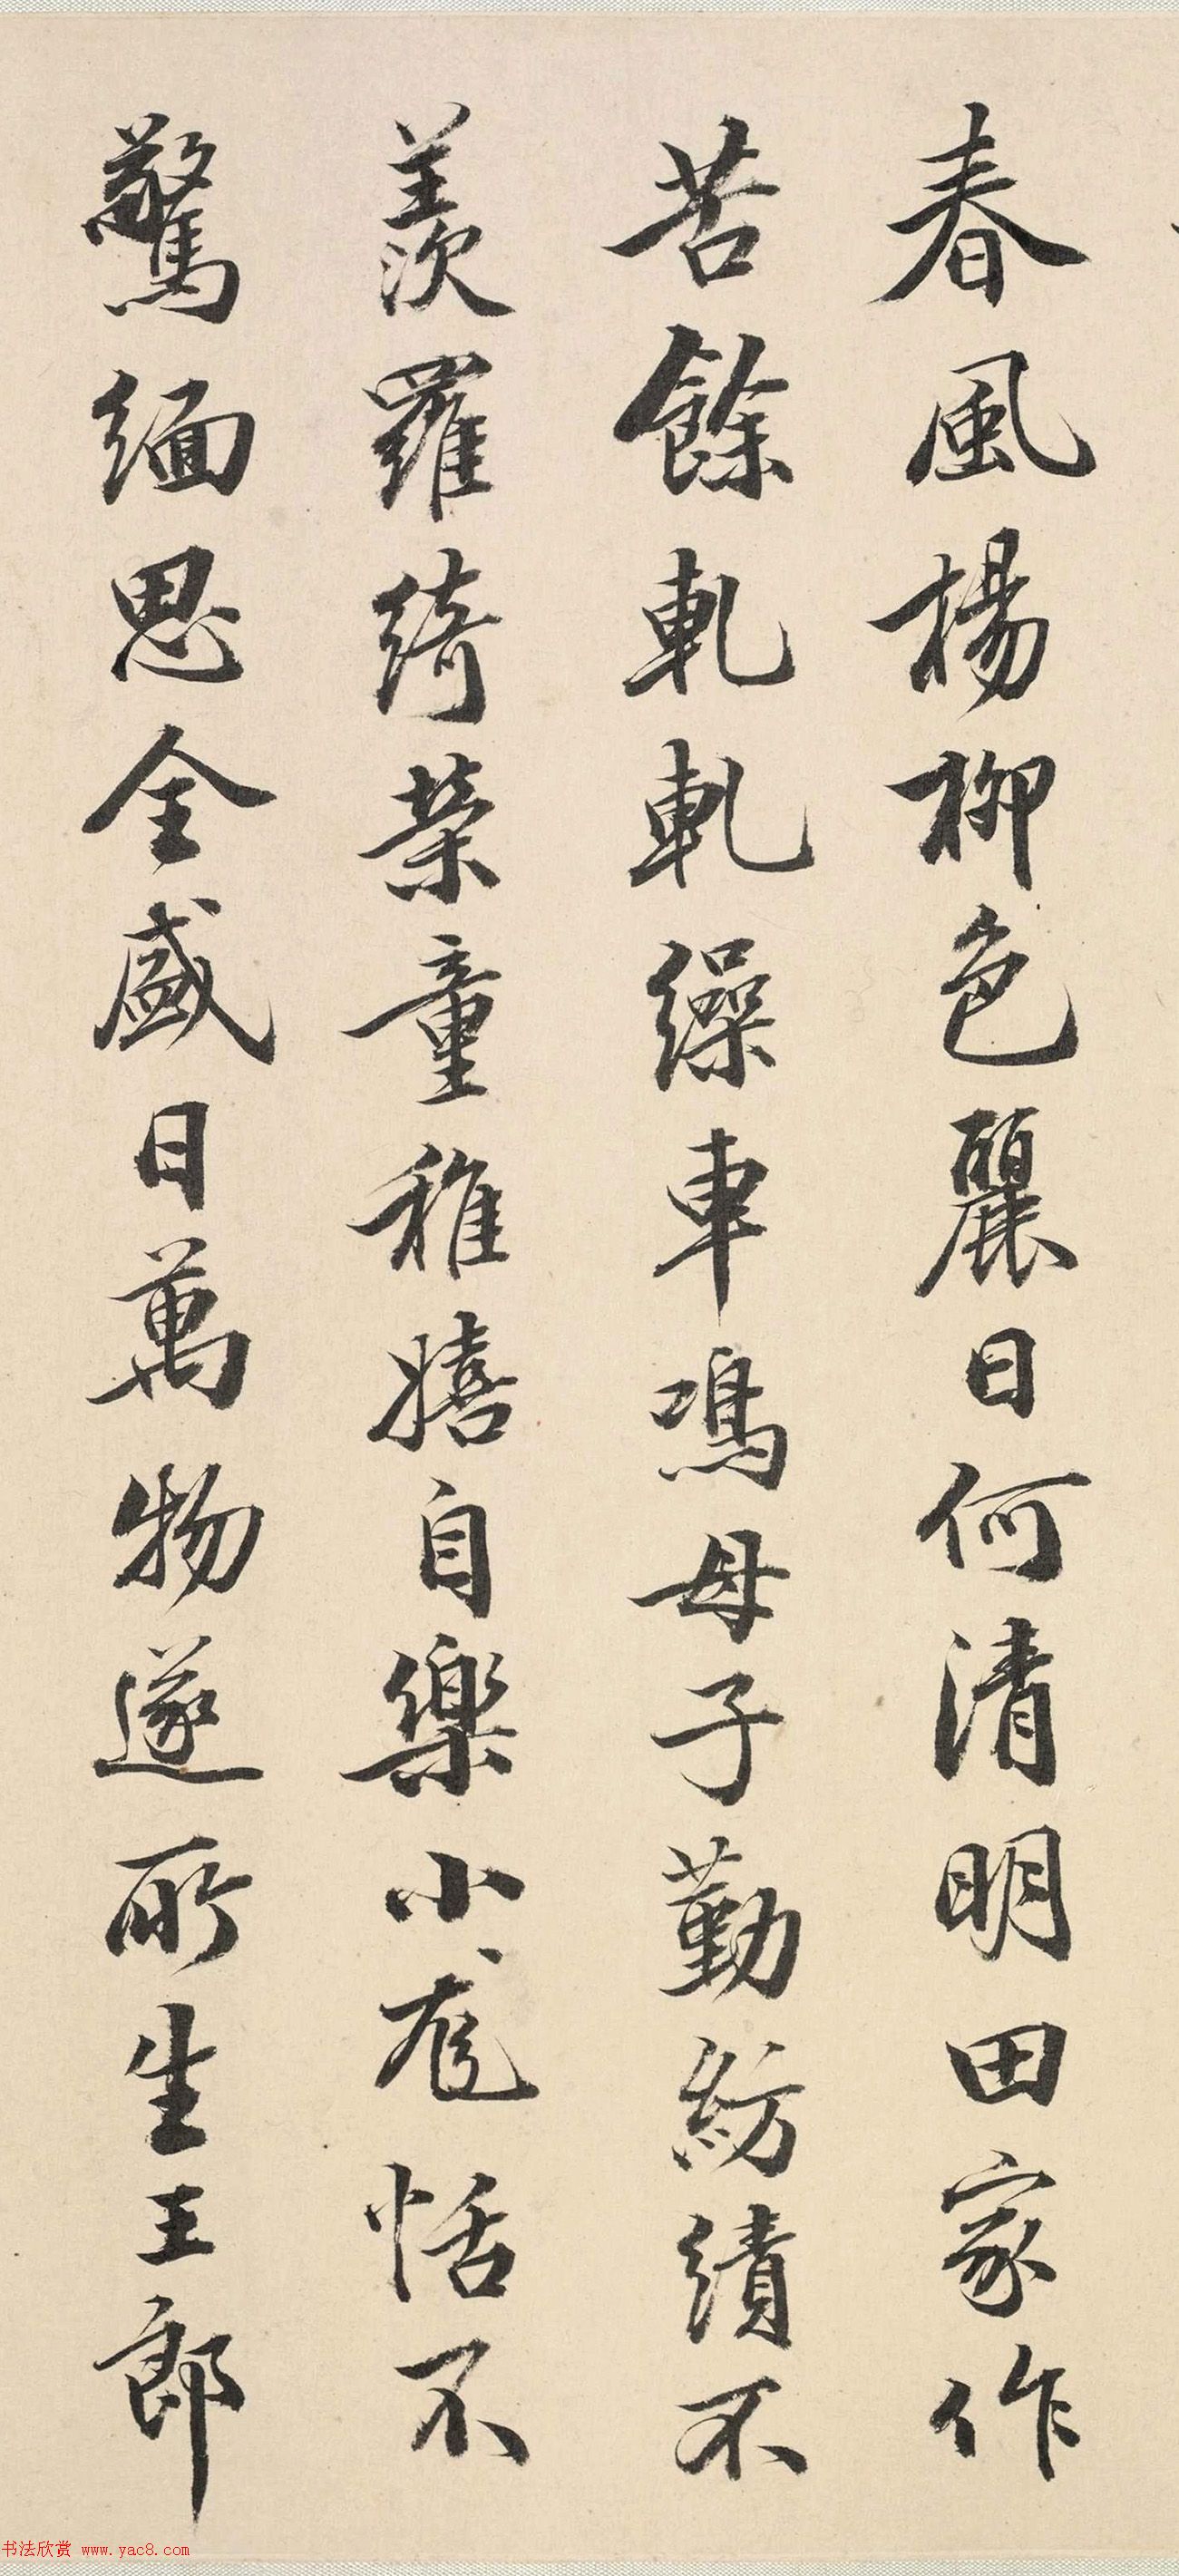 春風楊柳色麗日何清明田家作
苦餘軋軋繅車鳴母子勤紡績不
羨羅綺榮童稚嬉自樂小尨恬不
驚緬思全盛日萬物遂所生王郎
书法欣赏 www.yac8.com